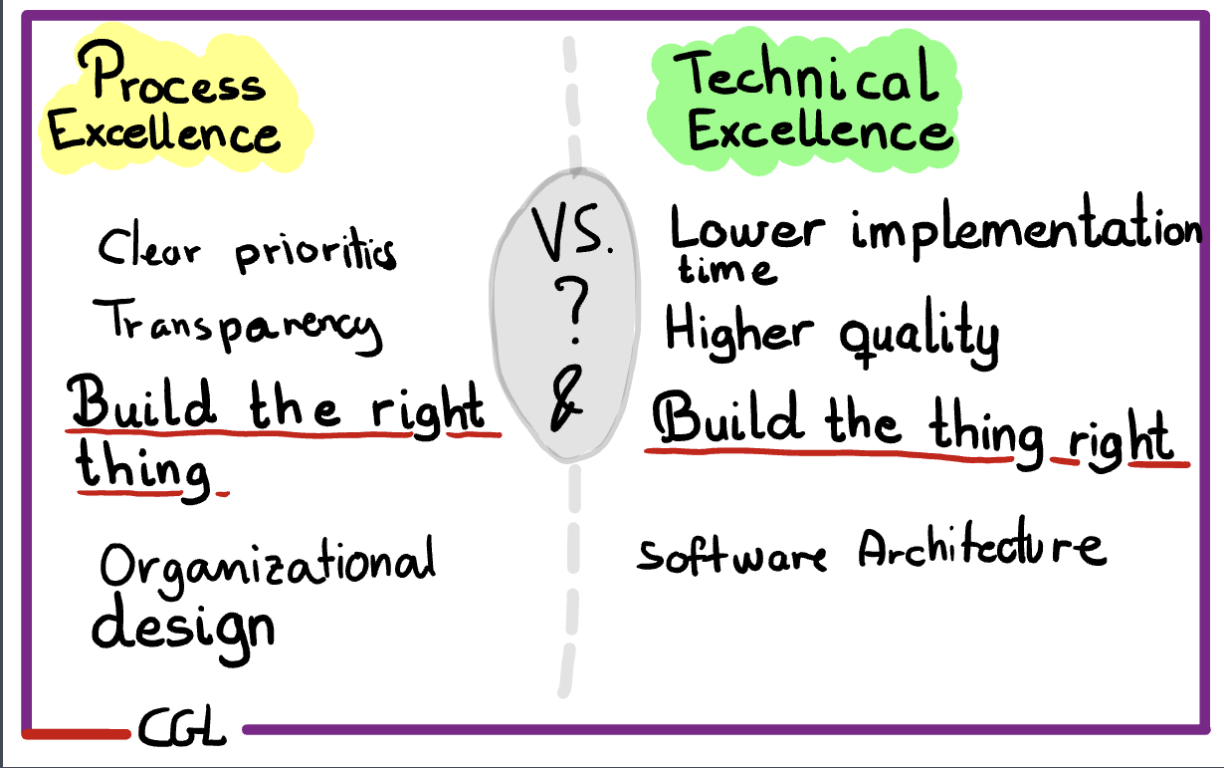 Process
Excellence
Clear priorities
Transparency
Build the right
thing
Organizational
design
VS.
?
&
Technical
Excellence
Lower implementation
time
Higher quality
Build the thing right
Software Architecture
CGL